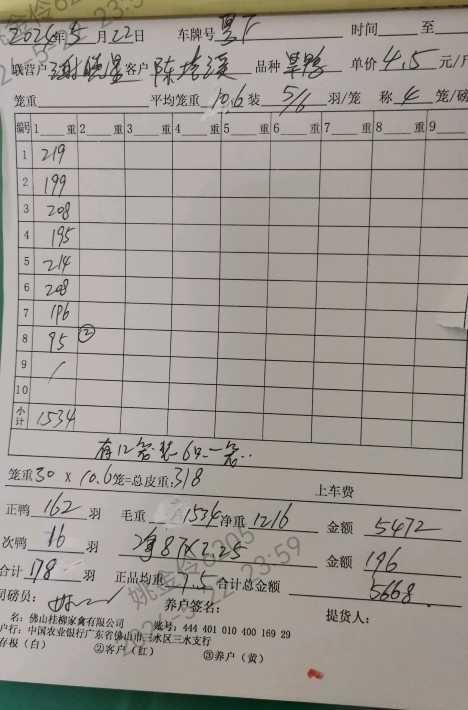 2026年5月22日 车牌号 时间 至
联营户 客户 陈 品种 旱鸭 单价 4.5 元/斤
笼重 平均笼重 10.6 装 5/6 羽/笼 称 4 笼/磅
编号 1 重 2 重 3 重 4 重 5 重 6 重 7 重 8 重 9
1 219
2 199
3 208
4 195
5 214
6 208
7 196
8 95 ②
9 /
10
小计 1534
有12笼装6只一笼
笼重30 x 10.6笼=总皮重:318
上车费
正鸭 162 羽 毛重 1534 净重 1216 金额 5472
次鸭 16 羽 净87X2.25 金额 196
合计 178 羽 正品均重 7.5 合计总金额 5668
司磅员: 养户签名: 提货人:
名: 佛山桂柳家禽有限公司 账号: 444 401 010 400 169 29
户行: 中国农业银行广东省佛山市三水区三水支行
存根(白) ②客户(红) ③养户(黄)
姚金伶6305
23:59